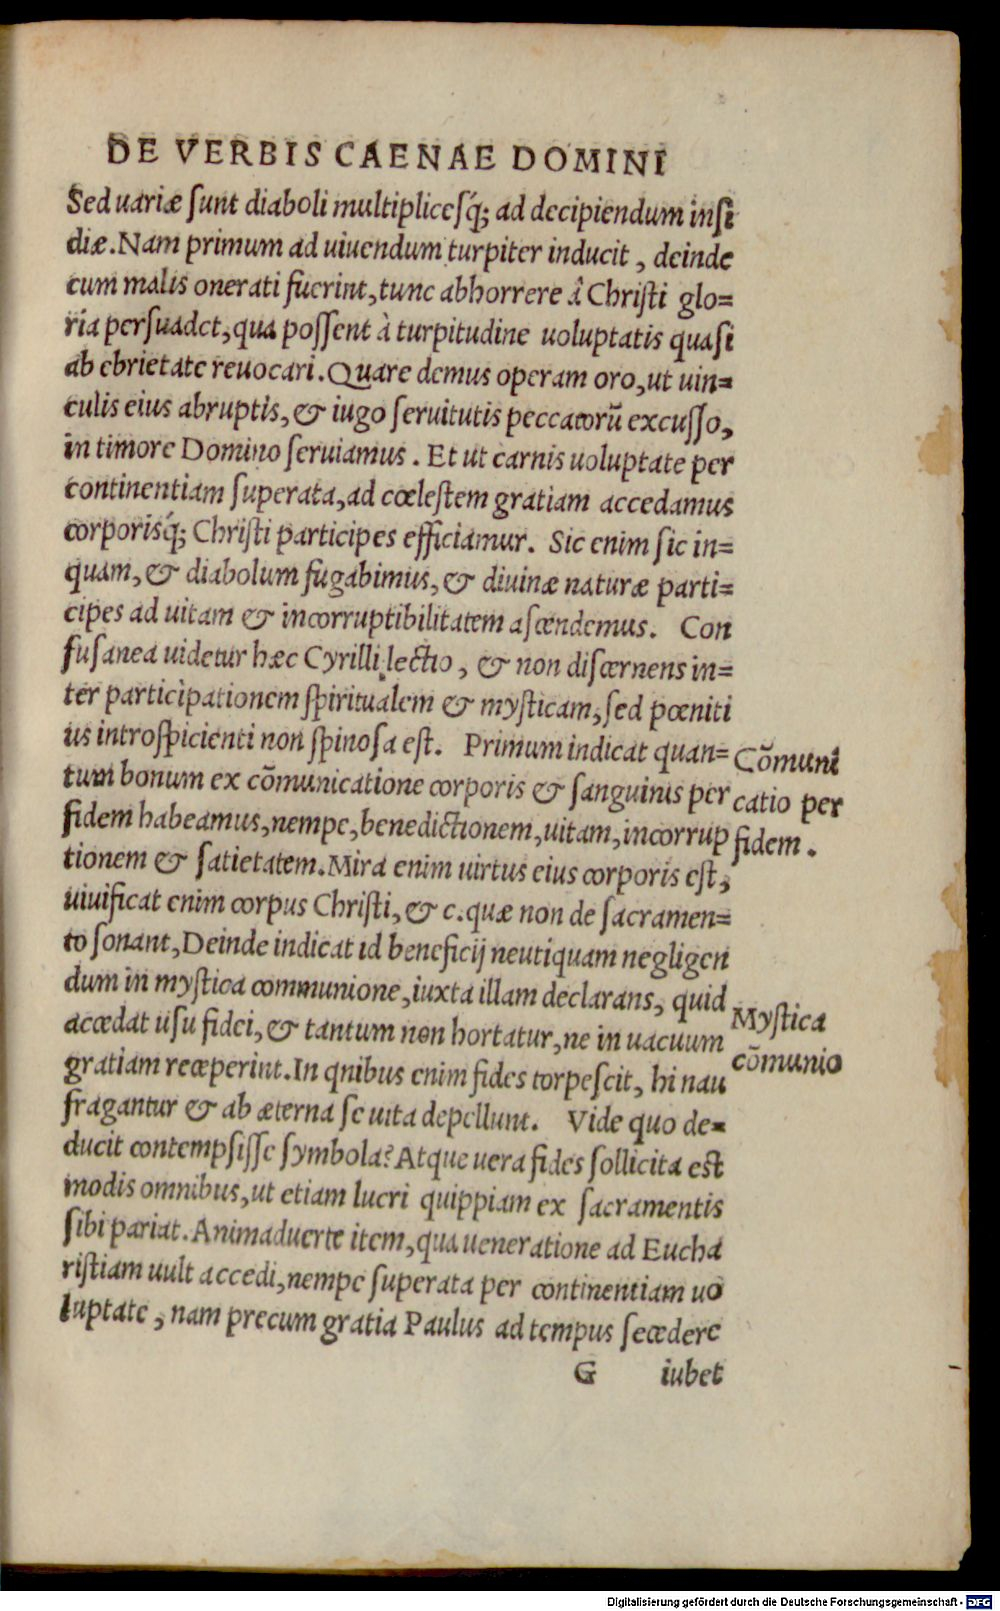 DE VERBIS CAENAE DOMINI
Sed uariæ sunt diaboli multiplicesq́; ad decipiendum insi
diæ. Nam primum ad uiuendum turpiter inducit, deinde
cum malis onerati fuerint, tunc abhorrere â Christi glo=
ria persuadet, qua possent à turpitudine uoluptatis quasi
ab ebrietate reuocari. Quare demus operam oro, ut uin=
culis eius abruptis, & iugo seruitutis peccatorũ excusso,
in timore Domino seruiamus. Et ut carnis uoluptate per
continentiam superata, ad cœlestem gratiam accedamus
corporisq́; Christi participes efficiamur. Sic enim sic in=
quam, & diabolum fugabimus, & diuinæ naturæ parti=
cipes ad uitam & incorruptibilitatem ascendemus. Con
fusanea uidetur hæc Cyrilli lectio, & non discernens in=
ter participationem spiritualem & mysticam, sed pœniti
us introspicienti non spinosa est. Primum indicat quan=
tum bonum ex cõmunicatione corporis & sanguinis per
fidem habeamus, nempe, benedictionem, uitam, incorrup
tionem & satietatem. Mira enim uirtus eius corporis est,
uiuificat enim corpus Christi, & c. quæ non de sacramen=
to sonant, Deinde indicat id beneficij neutiquam negligen
dum in mystica communione, iuxta illam declarans, quid
accedat usu fidei, & tantum non hortatur, ne in uacuum
gratiam receperint. In qnibus enim fides torpescit, hi nau
fragantur & ab æterna se uita depellunt. Vide quo de=
ducit contempsisse symbola? Atque uera fides sollicita est
modis omnibus, ut etiam lucri quippiam ex sacramentis
sibi pariat. Animaduerte item, qua ueneratione ad Eucha
ristiam uult accedi, nempe superata per continentiam uo
luptate, nam precum gratia Paulus ad tempus secedere
G iubet
Cõmuni
catio per
fidem.
Mystica
cõmunio
Digitalisierung gefördert durch die Deutsche Forschungsgemeinschaft - DFG